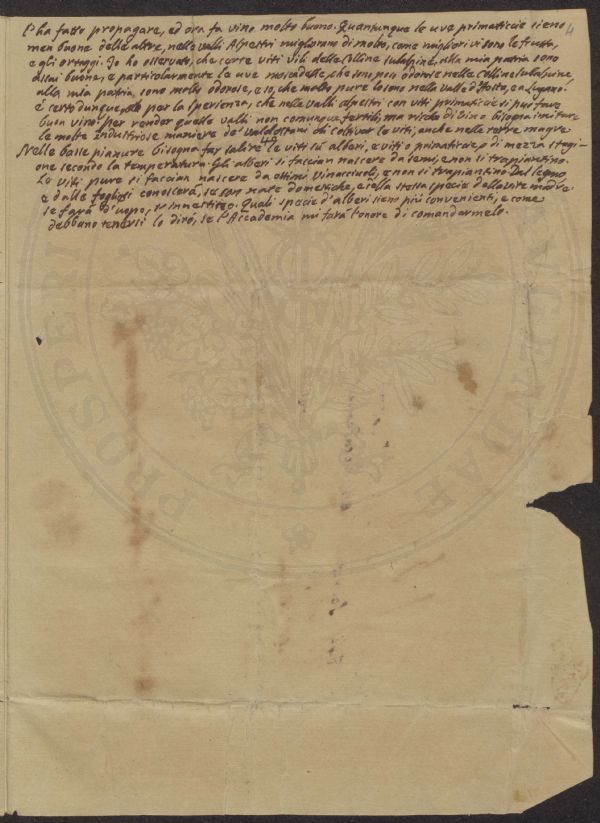 L'ha fatto propagare, ed ora fa vino molto buono. Quantunque le uve primaticcie sieno
men buone delle altre, nelle valli Alpestri migliorano di molto, come migliori vi sono le frutta,
e gli ortaggi. Io ho osservato, che certe viti vili delle Colline Subalpine, alla mia patria sono
assai buone, e particolarmente le uve moscadelle, che sono poco odorose nelle Colline Subalpine,
alla mia patria, sono molto odorose, e so, che molto pure lo sono nella valle d'Aosta, e a Lugano.
È certo dunque, per la sperienza, che nelle valli alpestri con viti primaticcie si può fare
buon vino. Per render quelle valli non comunque fertili, ma ricche di vino bisogna imitare
le molte industriose maniere de' Valdostani di coltivar le viti, anche nelle terre magre
Nelle basse pianure bisogna far salire le viti su alberi, e viti o primaticcie, o di mezza stagi-
one secondo la temperatura. Gli alberi si faccian nascere da semi, e non si trapiantino.
Le viti pure si faccian nascere da ottimi vinacciuoli, e non si trapiantino. Dal legno,
e dalle foglie si conoscerà, se son nate domestiche, e della stessa specie della vite madre.
Se farà d'uopo, s'innestino. Quali specie d'alberi sieno più convenienti, e come
debbano tenersi lo dirò, se l'Accademia mi farà l'onore di comandarmelo.
4
PROSPERI
AVGENDAE